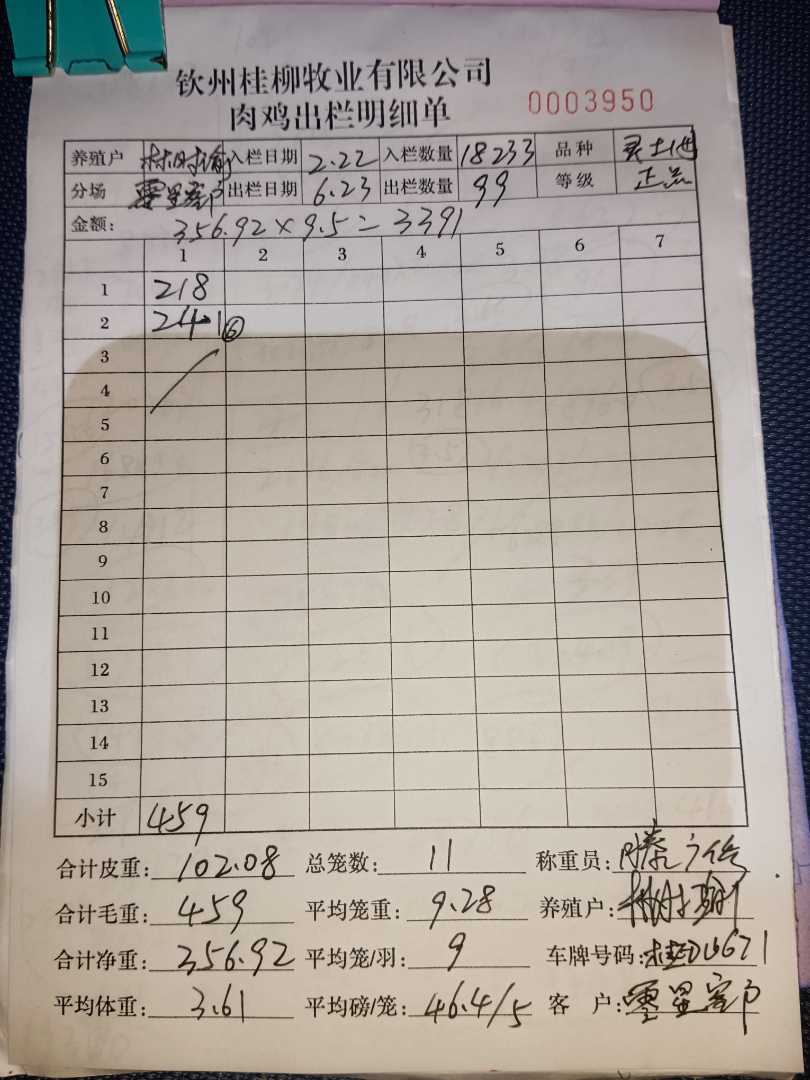 钦州桂柳牧业有限公司
肉鸡出栏明细单 0003950
养殖户 林时 入栏日期 2.22 入栏数量 18233 品种 土
分场 零星客户 出栏日期 6.23 出栏数量 99 等级 正品
金额: 356.92×9.5=3391
1 2 3 4 5 6 7
1 218
2 241⑥
3
4
5
6
7
8
9
10
11
12
13
14
15
小计 459
合计皮重: 102.08 总笼数: 11 称重员:
合计毛重: 459 平均笼重: 9.28 养殖户: 林时
合计净重: 356.92 平均笼/羽: 9 车牌号码: 桂
平均体重: 3.61 平均磅/笼: 46.4/5 客 户: 零星客户